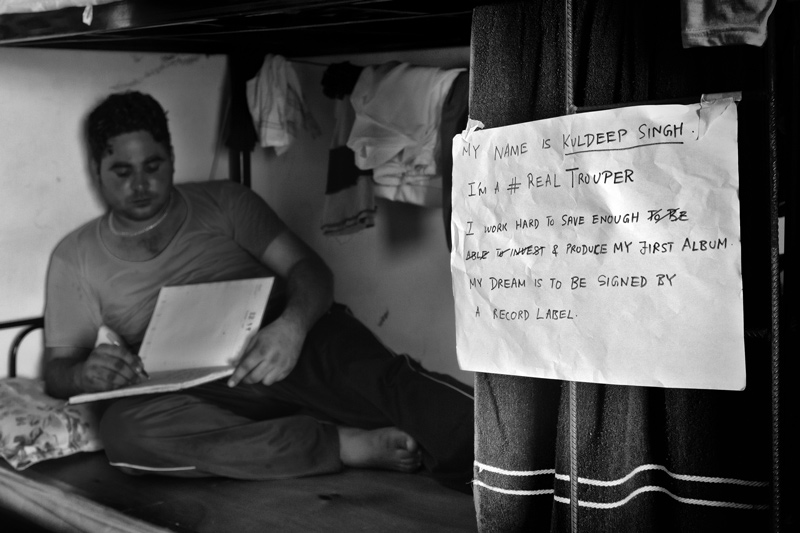 MY NAME IS KULDEEP SINGH.
I'M A # REAL TROUPER
I WORK HARD TO SAVE ENOUGH TO BE
ABLE TO INVEST & PRODUCE MY FIRST ALBUM
MY DREAM IS TO BE SIGNED BY
A RECORD LABEL.